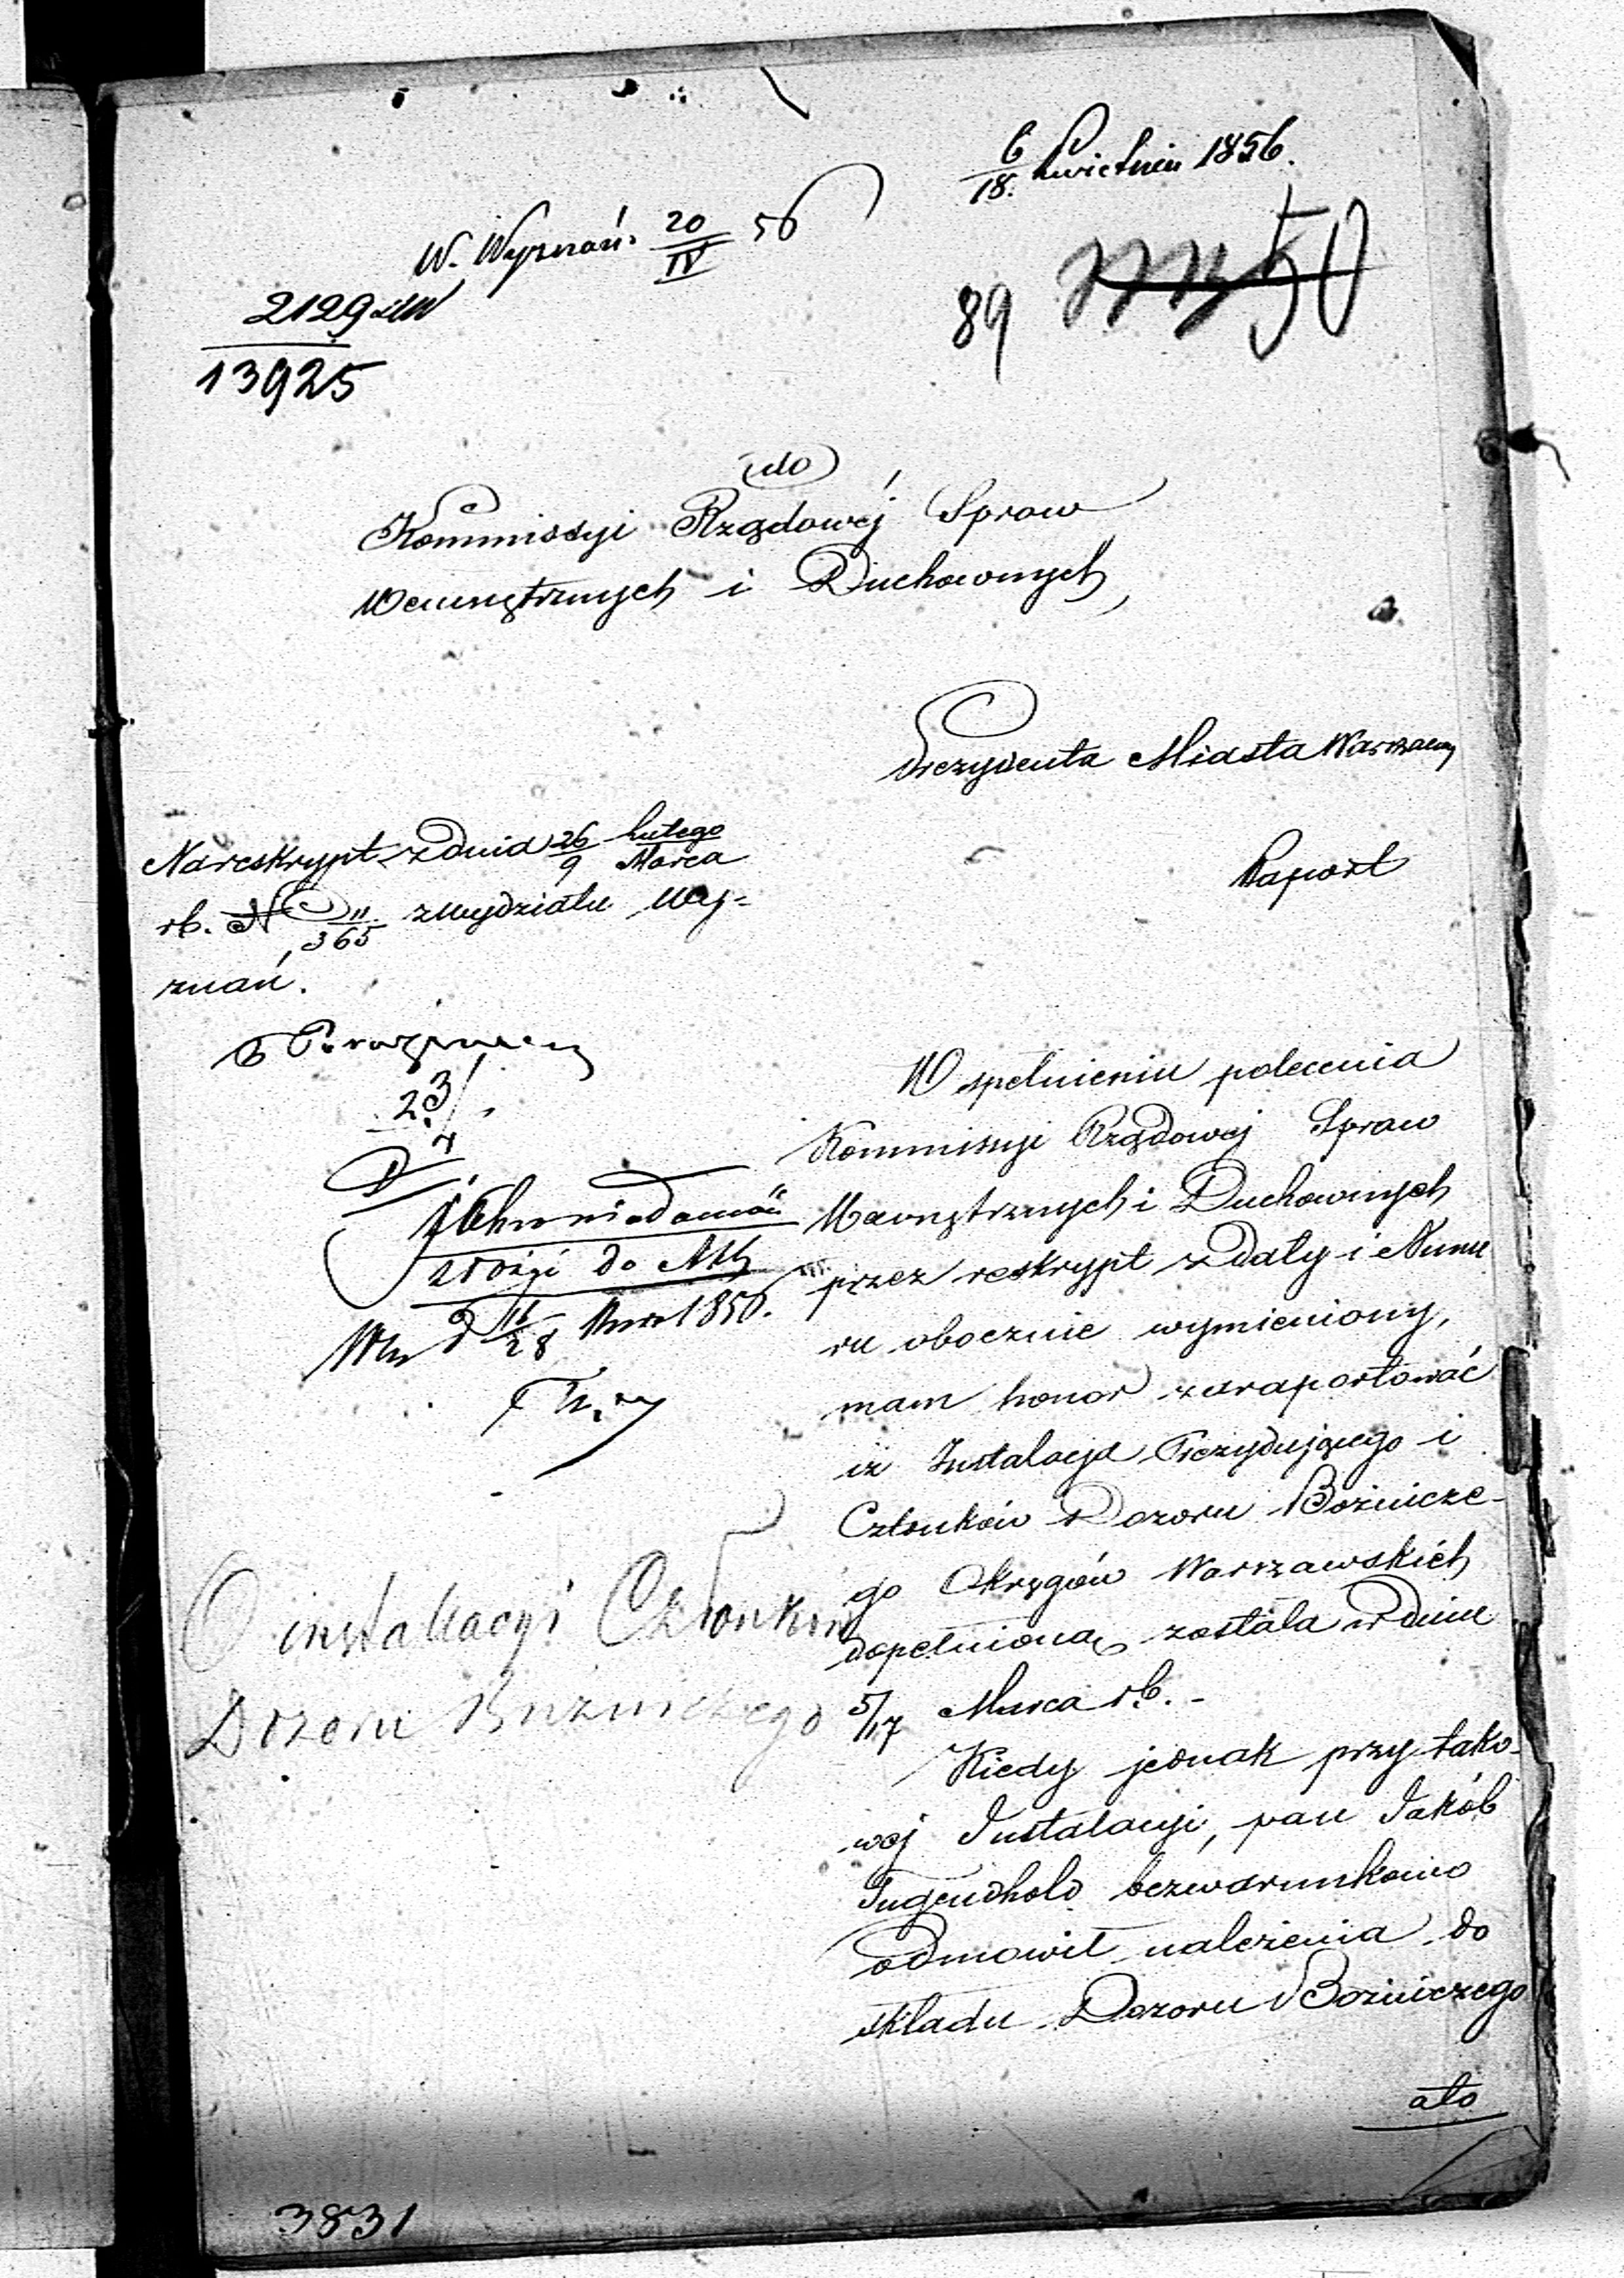 6/18. Kwietnia 1856.
W. Wyznań. 20/IV 56
2129
13925
89
50
do
Kommissyi Rządowéj Spraw
Wewnętrznych i Duchownych,
Prezydenta Miasta Warszawy
Raport
Na reskrypt z dnia 26/9 Lutego/Marca
rb. N 11/365 z Wydziału Wy-
znań.
23/4
złożyć do Akt
d 16/28 1856.
O installacyi Członków
Dozoru Bużniczego
W spełnieniu polecenia
Kommissyi Rządowej Spraw
Wewnętrznych i Duchownych
przez reskrypt z Daty i Nume
ru obocznie wymieniony,
mam honor zaraportować
iż Instalacja Prezydującego i
Członków Dozoru Bożnicze-
go Okręgów Warszawskich
dopełnioną została w dniu
5/17 Marca rb. -
Kiedy jednak przy tako-
wej Instalacyi, pan Jakób
Tugendhold bezwarunkowo
odmówił należenia do
składu Dozoru Bożniczego
ato
3831